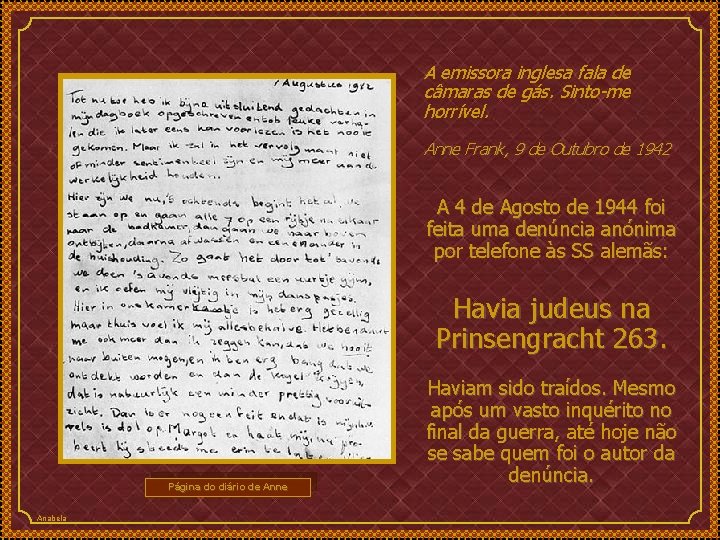 1 Augustus 1942
Tot nu toe heb ik bijna uitsluitend gedachten in
mijn dagboek opgeschreven en tot leuke verha-
len die ik later eens kan voorlezen is het nooit
gekomen. Maar ik zal in het vervolg maar niet
of minder sentimenteel zijn en mij meer aan de
werkelijkheid houden.
Hier zijn we nu, 's ochtends begint het al, we
staan op en gaan alle 7 op een rijtje na elkaar
naar de badkamer, dan gaan we naar boven
ontbijten, daarna afwassen en een en ander in
de huishouding. Zo gaat het door tot 's avonds
we doen 's avonds meestal een uurtje gym,
en ik oefen mij vlijtig in mijn danspasjes.
Hier in ons kamertje is het erg gezellig
maar thuis voel ik mij allesbehalve.
me ook meer dan ik zeggen kan, dat we nooit
naar buiten mogen, en ik ben erg bang dat we
ontdekt worden en dan de kogel krijgen,
dat is natuurlijk een minder prettig vooruit-
zicht. Dan is er nog een feit en dat is mijn
is dol op Margot en haat mij
A emissora inglesa fala de
câmaras de gás. Sinto-me
horrível.
Anne Frank, 9 de Outubro de 1942
A 4 de Agosto de 1944 foi
feita uma denúncia anónima
por telefone às SS alemãs:
Havia judeus na
Prinsengracht 263.
Haviam sido traídos. Mesmo
após um vasto inquérito no
final da guerra, até hoje não
se sabe quem foi o autor da
denúncia.
Página do diário de Anne
Anabela